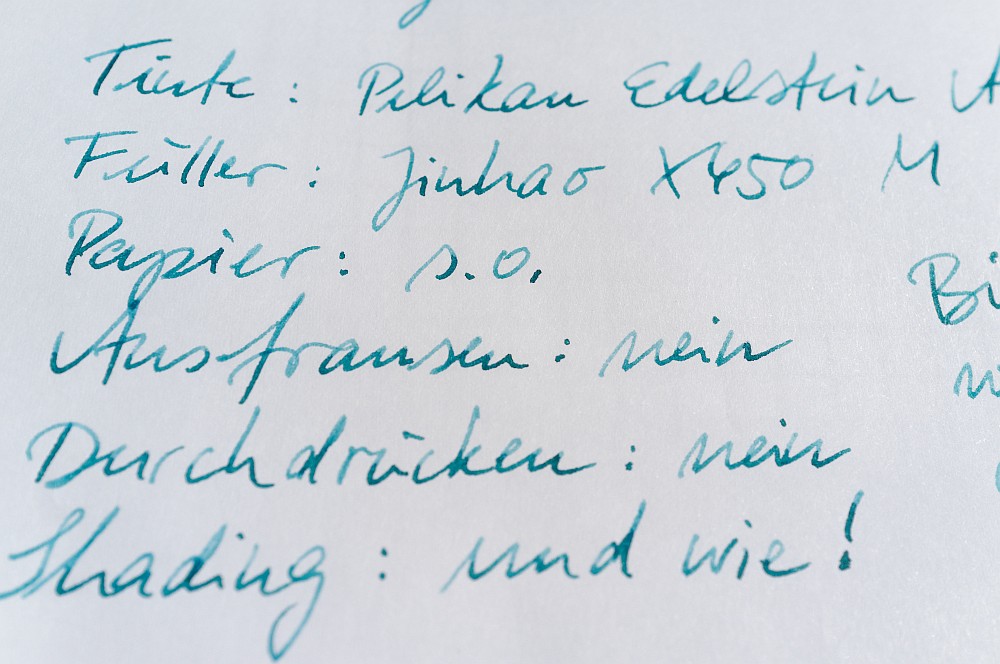 Tinte: Pelikan Edelstein
Füller: Jinhao X450 M
Papier: s.o.
Ausfransen: nein
Durchdrücken: nein
Shading: und wie!